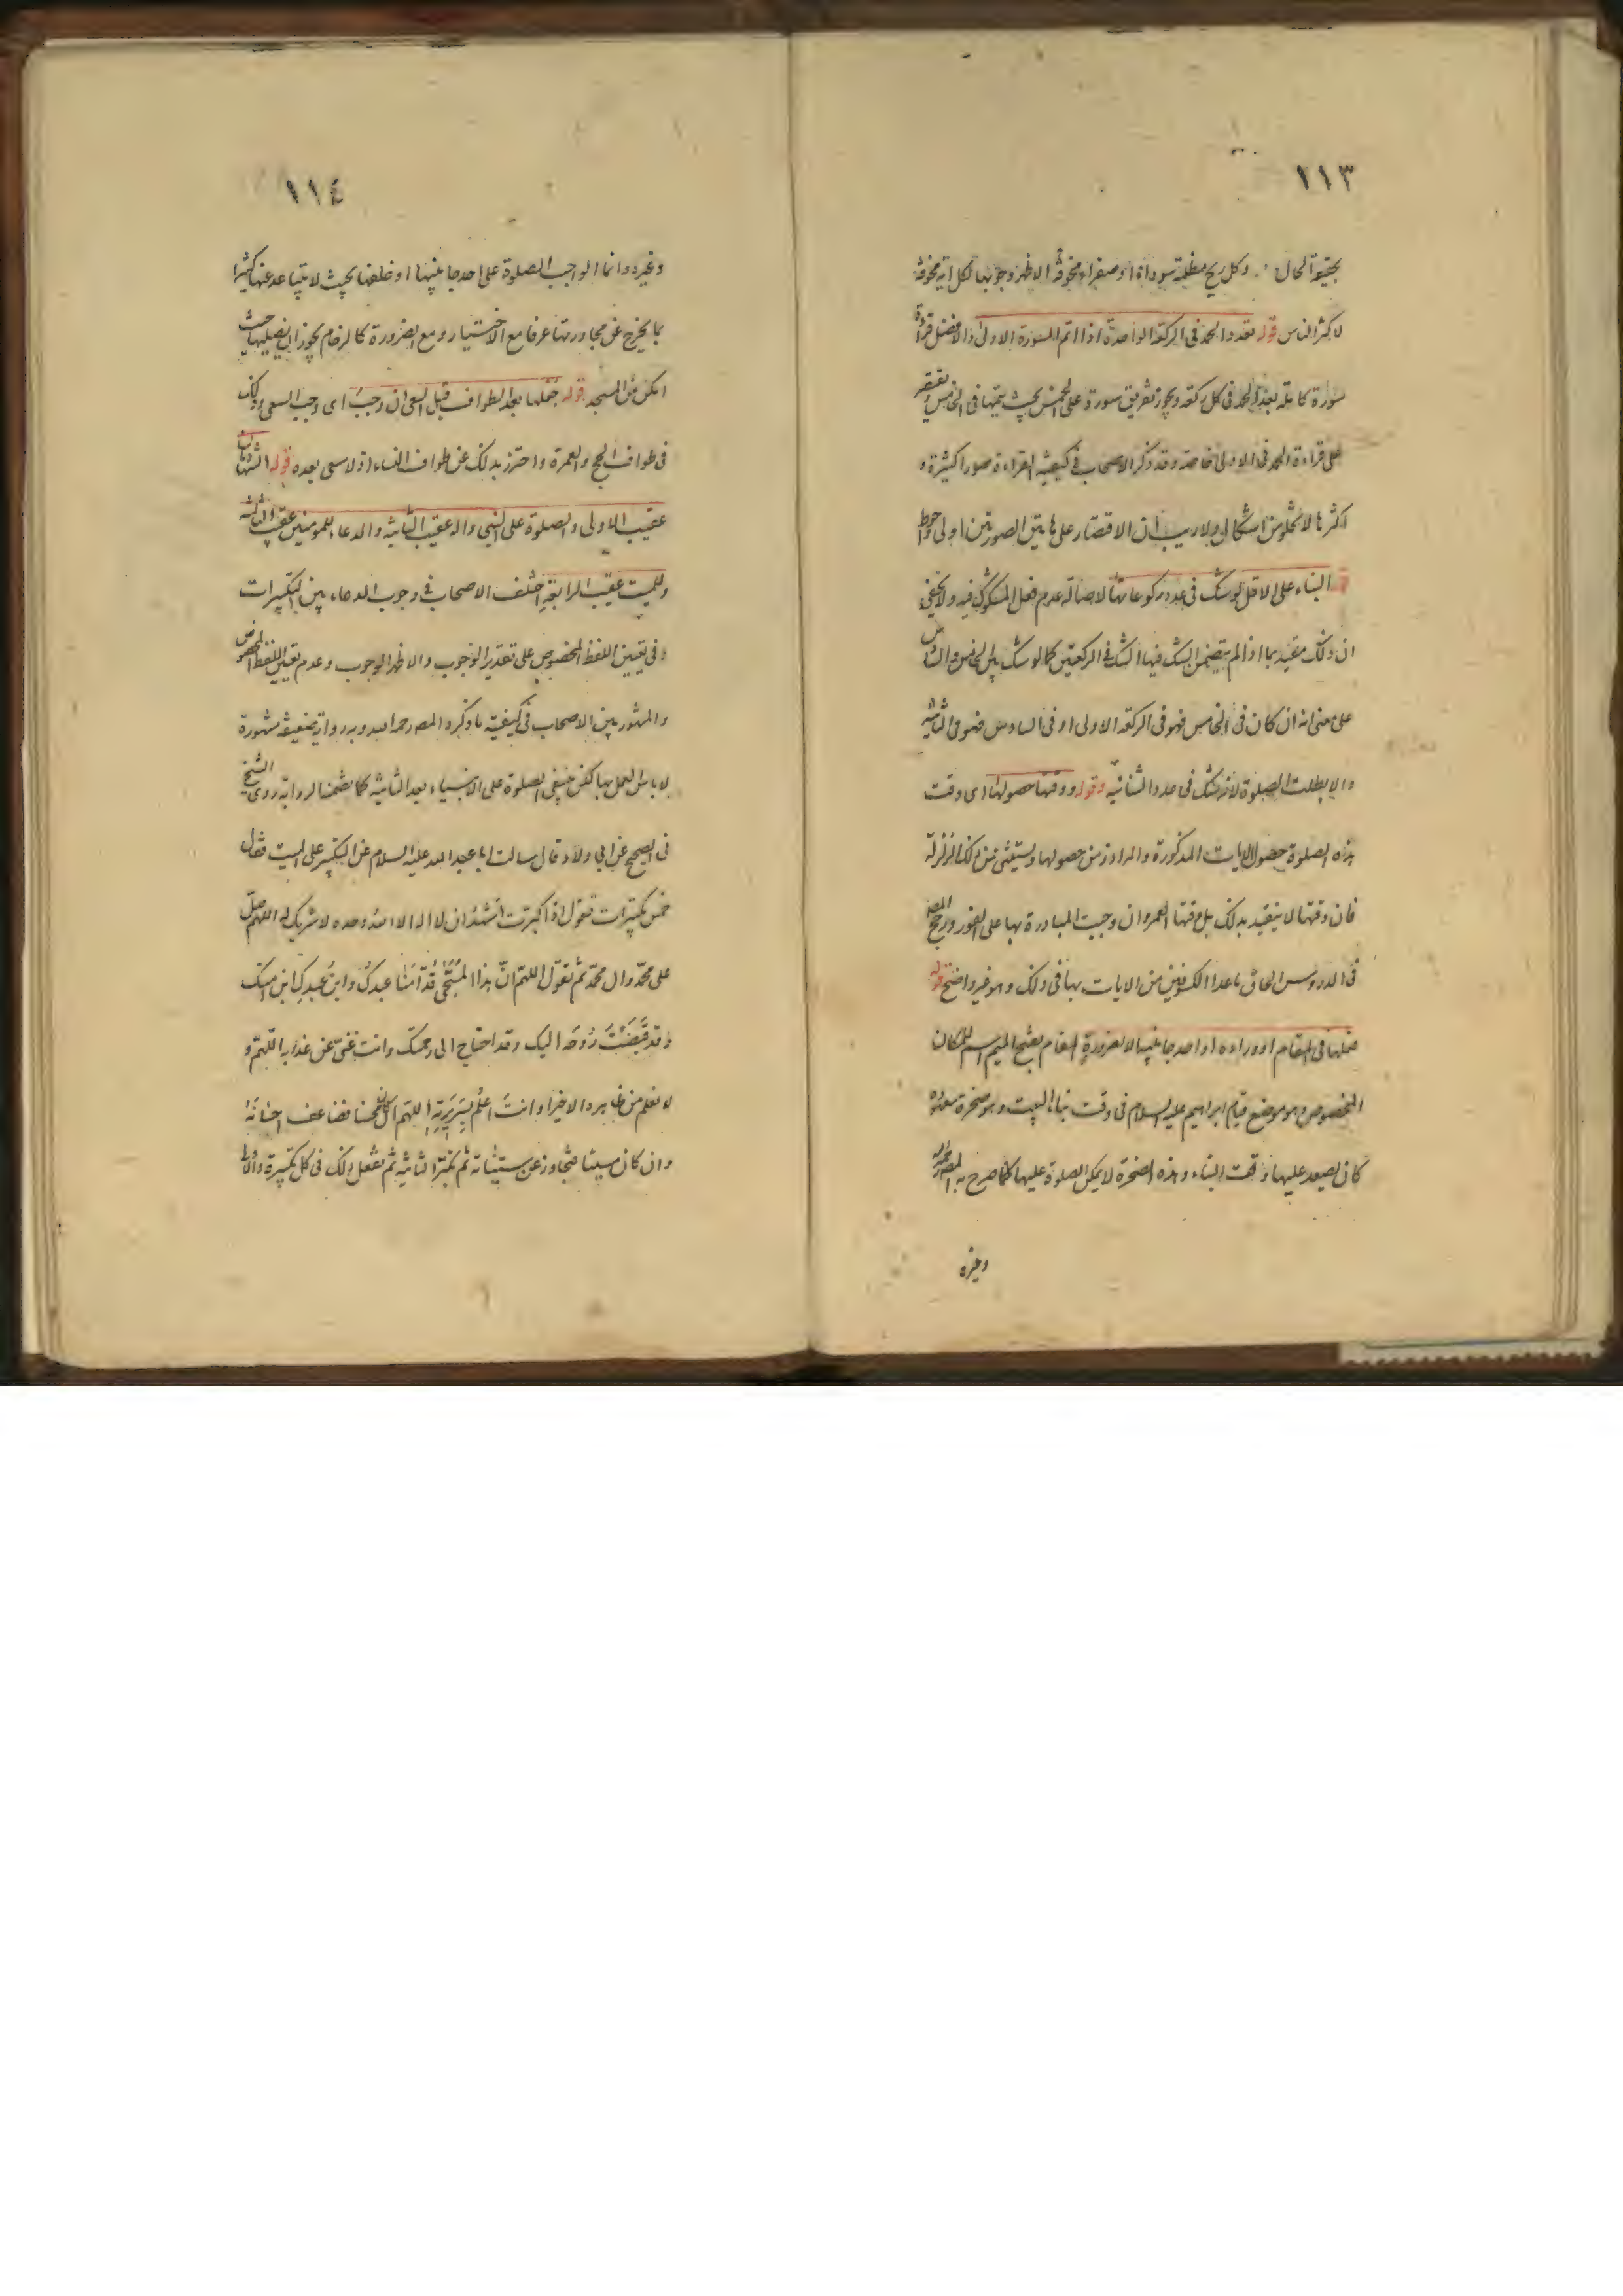 ١١٣
بحقيقة الحال وكل ريح مظلمة سوداء او صفراء مخوفة الاظهر وجوبها لكل اية مخوفة
لاكثر الناس قوله تعدد الحمد في الركعة الواحدة اذا اتم السورة الاولى والافضل قراءة
سورة كاملة بعد الحمد في كل ركعة ويجوز تفريق سورة على الخمس بحيث يتمها في الخامس ويقتصر
على قراءة الحمد في الاولى خاصة وقد ذكر الاصحاب في كيفية القراءة صورا كثيرة و
اكثرها لا تخلو من اشكال ولا ريب ان الاقتصار على هاتين الصورتين اولى واحوط
البناء على الاقل لو شك في عدد ركوعاتها لاصالة عدم فعل المشكوك فيه ولا يخفى
ان ذلك مقيد بما اذا لم يتضمن الشك فيها الشك في الركعتين كما لو شك بين الخامس والسادس
على معنى انه ان كان في الخامس فهو في الركعة الاولى او في السادس فهو في الثانية
والا بطلت الصلوة لانه شك في عدد الثنائية وقوله ووقتها حصولها اى وقت
هذه الصلوة حصول الايات المذكورة والمراد زمن حصولها ويستثنى من ذلك الزلزلة
فان وقتها لا يتقيد بذلك بل وقتها العمر وان وجبت المبادرة بها على الفور ورجح المصر
في الدروس الحاق ما عدا الكسوفين من الايات بها في ذلك وهو غير واضح قوله
فعلها في المقام او وراءه او احد جانبيه الا لضرورة المقام بفتح الميم اسم للمكان
المخصوص وهو موضع قيام ابراهيم عليه السلام في وقت بناء البيت وهو صخرة
كان يصعد عليها وقت البناء وهذه الصخرة لا يمكن الصلوة عليها كما صرح به المصر
وغيره
١١٤
وغيره وانما الواجب الصلوة على احد جانبيها او خلفها بحيث لا يتباعد عنها كثيرا
بما يخرج عن مجاورتها عرفا مع الاختيار ومع الضرورة كالزحام يجوز ان يصليها حيث
امكن من المسجد قوله جعلها بعد الطواف قبل السعي ان وجب اى وجب السعي وذلك
في طواف الحج والعمرة واحترز بذلك عن طواف النساء اذ لا سعى بعده قوله الشهادتان
عقيب الاولى والصلوة على النبي واله عقيب الثانية والدعاء للمومنين عقيب الثالثة
وللميت عقيب الرابعة اختلف الاصحاب في وجوب الدعاء بين التكبيرات
وفي تعيين اللفظ المخصوص على تقدير الوجوب والاظهر الوجوب وعدم تعيين اللفظ المخصوص
والمشهور بين الاصحاب في كيفيته ما ذكره المصر رحمه الله وبه رواية ضعيفة مشهورة
لا باس بالعمل بها لكن ينبغي الصلوة على الانبياء بعد الثانية كما تضمنه الرواية روى الشيخ
في الصحيح عن ابي ولاد قال سالت ابا عبد الله عليه السلام عن التكبير على الميت فقال
خمس تكبيرات تقول اذا كبرت اشهد ان لا اله الا الله وحده لا شريك له اللهم صل
على محمد وال محمد ثم تقول اللهم ان هذا المسجى قدامنا عبدك وابن عبدك ابن امتك
وقد قبضت روحه اليك وقد احتاج الى رحمتك وانت غني عن عذابه اللهم و
لا نعلم من ظاهره الا خيرا وانت اعلم بسريرته اللهم ان كان محسنا فضاعف احسانه
وان كان مسيئا فتجاوز عن سيئاته ثم تكبر الثانية ثم تفعل ذلك في كل تكبيرة